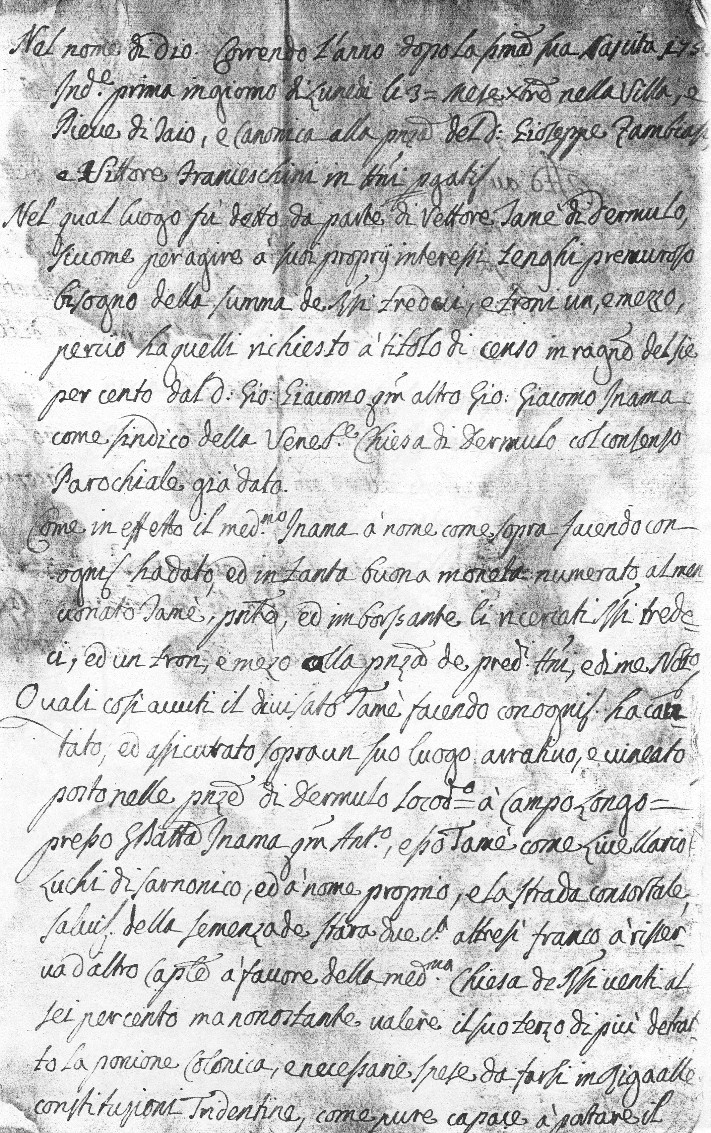 Nel nome di Dio Correndo l'anno dopo la sua Nascita 175
Ind.e prima in giorno di Lunedi li 3= Mese xbre nella Villa, e
Pieve di Taio, e Canonica alla pnza del d: Gioseppe Zambiasi
e Vittore Franceschini in ttni pgatis
Nel qual luogo fù detto da parte di Vettore Tamè di Dermulo,
siccome per agire à suoi proprij interessi tenghi premuroso
bisogno della summa de Rsi tredeci, e troni un, e mezzo,
perciò hà quelli richiesto à titolo di censo in ragne del sie
per cento dal d: Gio: Giacomo qm altro Gio: Giacomo Inama
come sindico della Veneb.le Chiesa di Dermulo col consenso
Parochiale già dato.
Come in effetto il med.mo Inama à nome come sopra facendo con
ognis. hà dato, ed in tanta buona moneta numerato al men
cionato Tamè, pnte, ed imborssante li ricercati Rsi trede
ci, ed un tron, e mezo alla pnza de pred. ttni, e di me Notto
Quali così avuti il divisato Tamè facendo con ognis. hà cau
tato, ed assicurato sopra un suo luogo arrativo, e vineato
posto nelle pnze di Dermulo loco d.o = à Campo Longo =
presso GBatta Inama qm Ant.o, esso Tamè come Livellario
Luchi di Sarnonico, ed à nome proprio, e la strada consortale,
salvis. della semenza de stara due c.a altresì franco à riser
va d'altro Caple à favore della med.ma Chiesa de Rsi venti al
sei per cento ma nonostante valere il suo terzo di più detrat
to la porzione Colonica, e necessarie spese da farsi in Ziga alle
constituzioni Tridentine, come pure capace à portare il